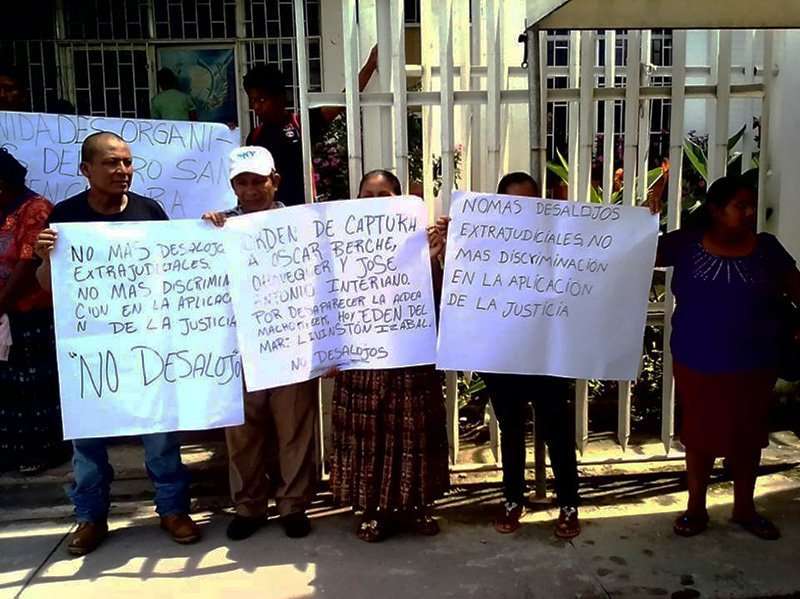 NIDADES ORGANI-
NO MAS DESALOJO
EXTRAJUDICIALES.
NO MAS DISCRIMIN
CION EN LA APLICACIO
N DE LA JUSTICIA
"NO DESALOJO
ORDEN DE CAPTURA
A OSCAR BERCHE,
Y JOSE
ANTONIO INTERIANO.
POR DESAPARECER LA ALDEA
HOY EDEN DEL
MAR. LIVINSTON IZABAL.
NO DESALOJOS
NOMAS DESALOJOS
EXTRAJUDICIALES, NO
MAS DISCRIMINACIÓN
EN LA APLICACIÓN
DE LA JUSTICIA